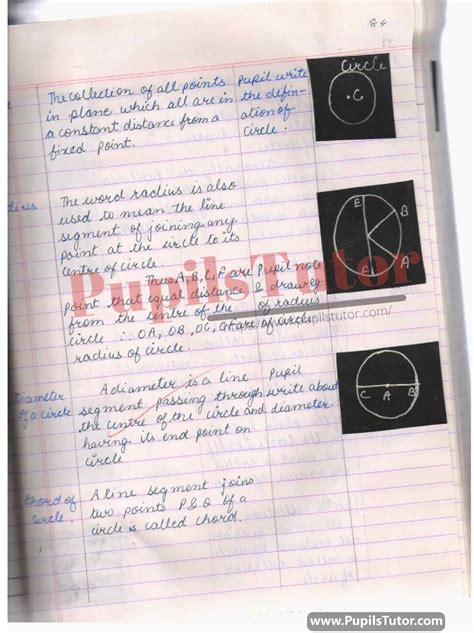 84
84
The collection of all points
in plane which all are in
a constant distance from a
fixed point.
Pupil write
the defin-
ation of
circle.
Circle
C
The word radius is also
used to mean the line
segment of joining any
point at the circle to its
centre of circle.
Thus A, B, C, E are
point that equal distance
from the centre of the
circle ∴ OA, OB, OC, are
radius of circle.
Pupil note
& draw eg
of radius
of circle.
E
B
A
PupilsTutor
www.pupilstutor.com/
Diameter
of a circle
A diameter is a line
segment passing through
the centre of the circle and
having its end point on
circle
Pupil
write about
diameter.
C A B
Chord of
circle.
A line segment joins
two points P & Q of a
circle is called chord.
www.PupilsTutor.com